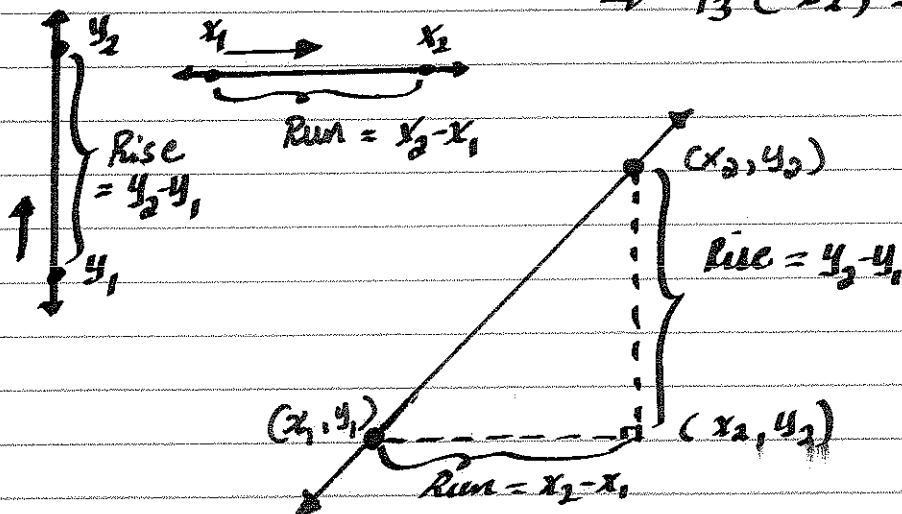 y₂
x₁
x₂
Run = x₂-x₁
Rise
= y₂-y₁
y₁
(x₂, y₂)
Rise = y₂-y₁
(x₁, y₁)
(x₂, y₂)
Run = x₂-x₁